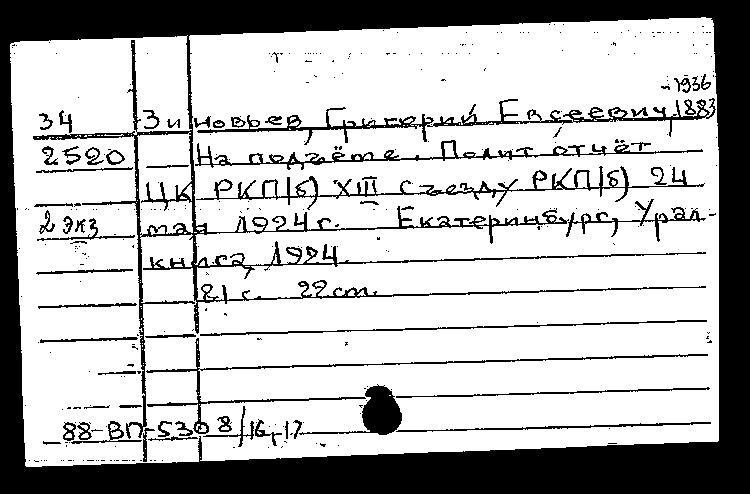 -1936
34 Зиновьев, Григорий Евсеевич, 1883
2520 На подъёме. Полит. отчёт
ЦК РКП(б) XIII съезду РКП(б) 24
2 экз мая 1924 г. Екатеринбург, Урал-
книга, 1924.
81 с. 22 cm.
88-ВП-5308/16,17